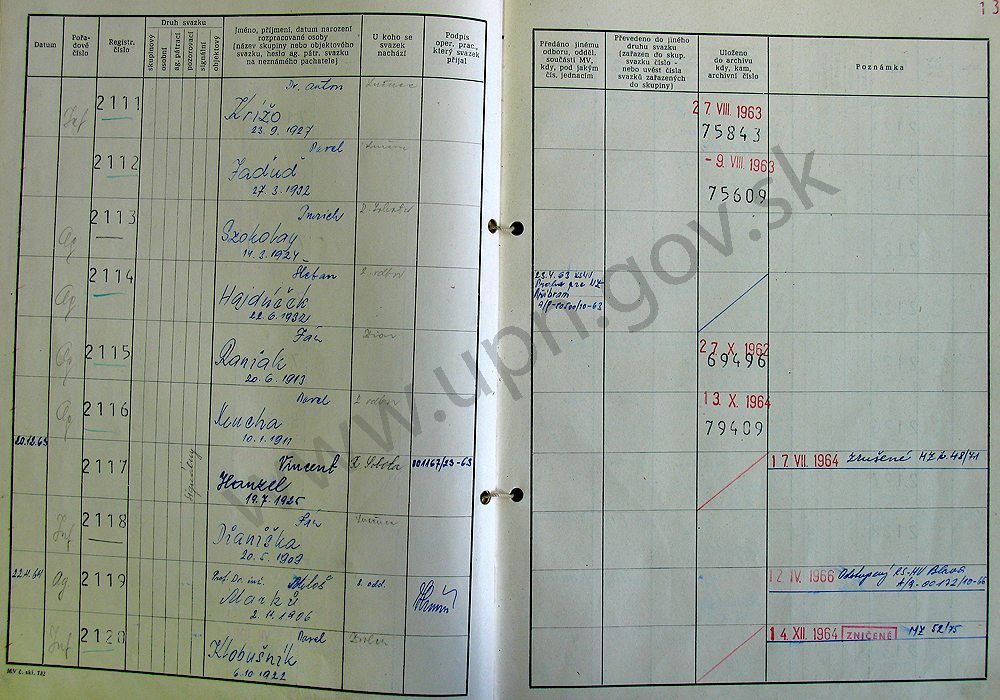 13
Datum
Pořadové číslo
Registr. číslo
Druh svazku
skupinový
osobní
ag. pátrací
pozorovací
signální
objektový
Jméno, příjmení, datum narození
rozpracované osoby
(název skupiny nebo objektového
svazku, heslo ag. pátr. svazku
na neznámého pachatele)
U koho se
svazek
nachází
Podpis
oper. prac.,
který svazek
přijal
Předáno jinému
odboru, odděl.
součásti MV,
kdy, pod jakým
čís. jednacím
Převedeno do jiného
druhu svazku
(zařazen do skup.
svazku číslo -
nebo uvést čísla
svazků zařazených
do skupiny)
Uloženo
do archivu
kdy, kam,
archivní číslo
Poznámka
Inf 2111 Dr. Anton
Krížo
23.9.1927
27. VIII. 1963
75843
2112 Pavel
Jaďuď
27.3.1932
- 9. VIII. 1963
75609
Ag 2113
Szokolay
14.3.1924
Ag 2114 Štefan
Hajdúček
22.6.1932
2. odbor
Ag 2115 Ján
Raniak
20.6.1913
27. X. 1962
69496
Ag 2116 Pavel
Kucha
10.1.1911
2. odbor
13. X. 1964
79409
20.12.63
2117 Vincent
Hanzel
19.7.1925
001167/23-63
17. VII. 1964 Zrušené MZ č. 48/71
Inf 2118 Ján
20.5.1909
Ag 2119 Prof. Dr. inž. Miloš
Marko
2.11.1906
2. odd.
12. IV. 1966
Inf 2120 Pavel
Klobušník
6.10.1922
Zvolen
14. XII. 1964 ZNIČENÉ MZ 52/75
MV č. skl. 732
www.upn.gov.sk